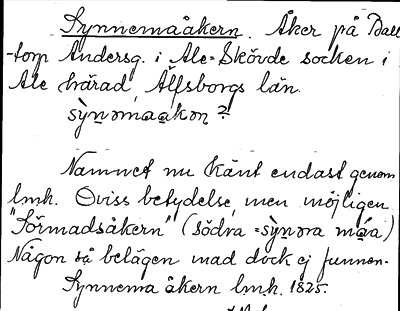 Synnemaåkern. Åker på Ball
-torp Andersg. i Ale-Skövde socken i
Ale härad, Älfsborgs län.
sỳnəmaakən?
Namnet nu känt endast genom
lmh. Oviss betydelse, men möjligen
"Sörmadsåkern" (södra = sỳnəra máa)
Någon så belägen mad dock ej funnen.
Synnema åkern lmh. 1825.